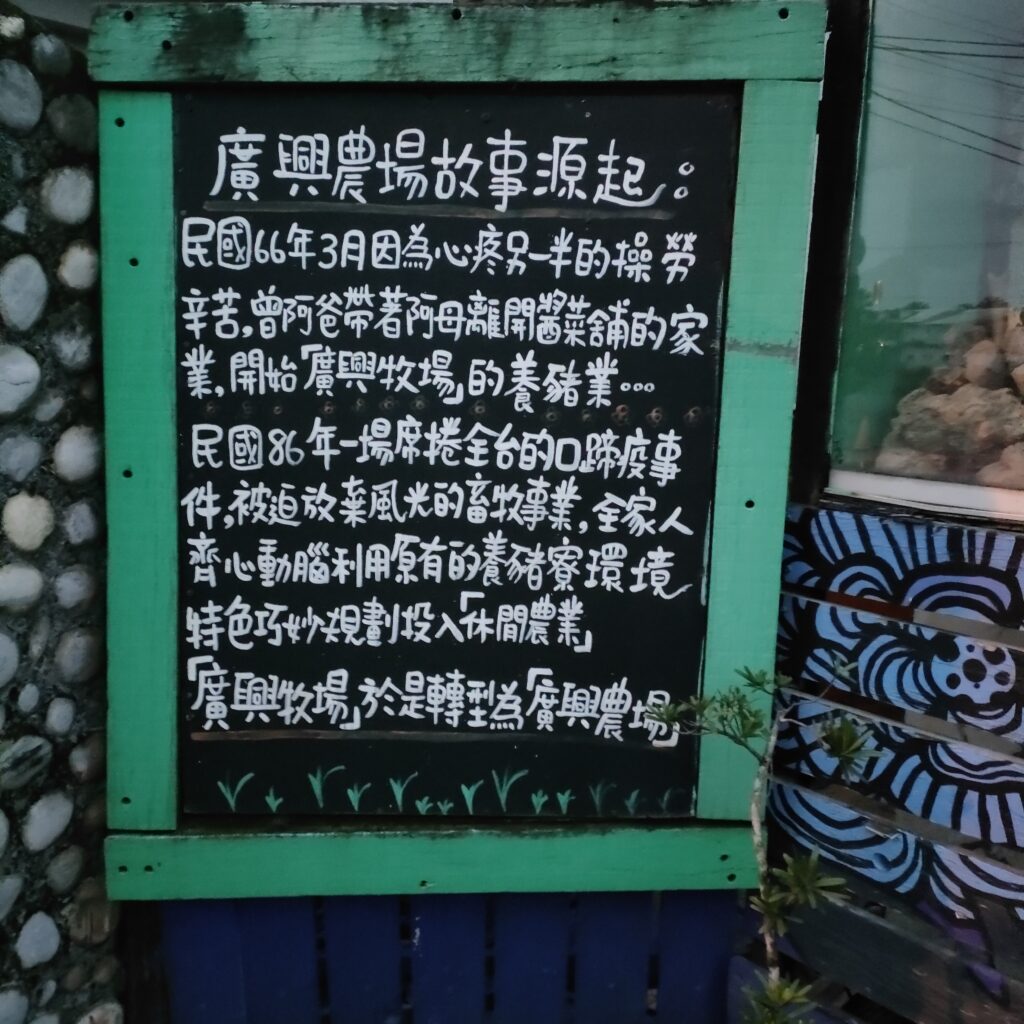 廣興農場故事源起：
民國66年3月因為心疼另一半的操勞
辛苦，曾阿爸帶著阿母離開醬菜舖的家
業，開始「廣興牧場」的養豬業...
民國86年一場席捲全台的口蹄疫事
件，被迫放棄風光的畜牧事業，全家人
齊心動腦利用原有的養豬寮環境
特色巧妙規劃投入「休閒農業」
「廣興牧場」於是轉型為「廣興農場」